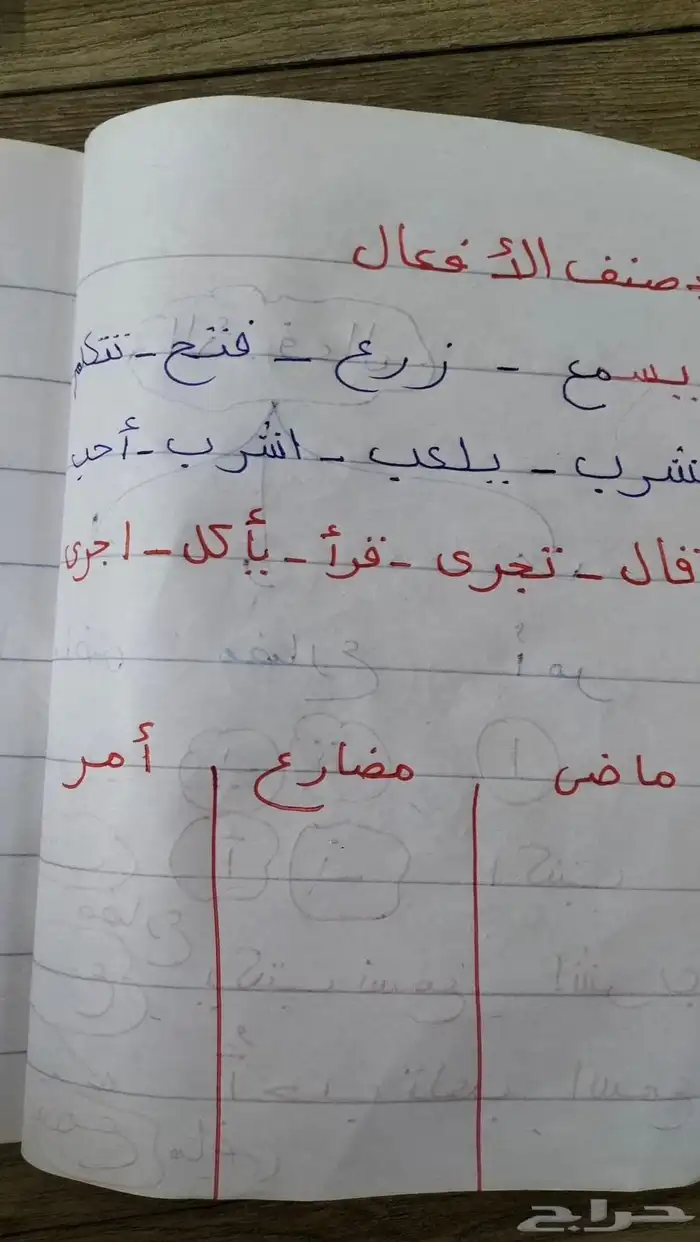 صنف الأفعال
يسمع - زرع - فتح - تتكلم
نشرب - يلعب - اشرب - أحب
قال - تجرى - قرأ - يأكل - اجرى
ماضى مضارع أمر
حراج